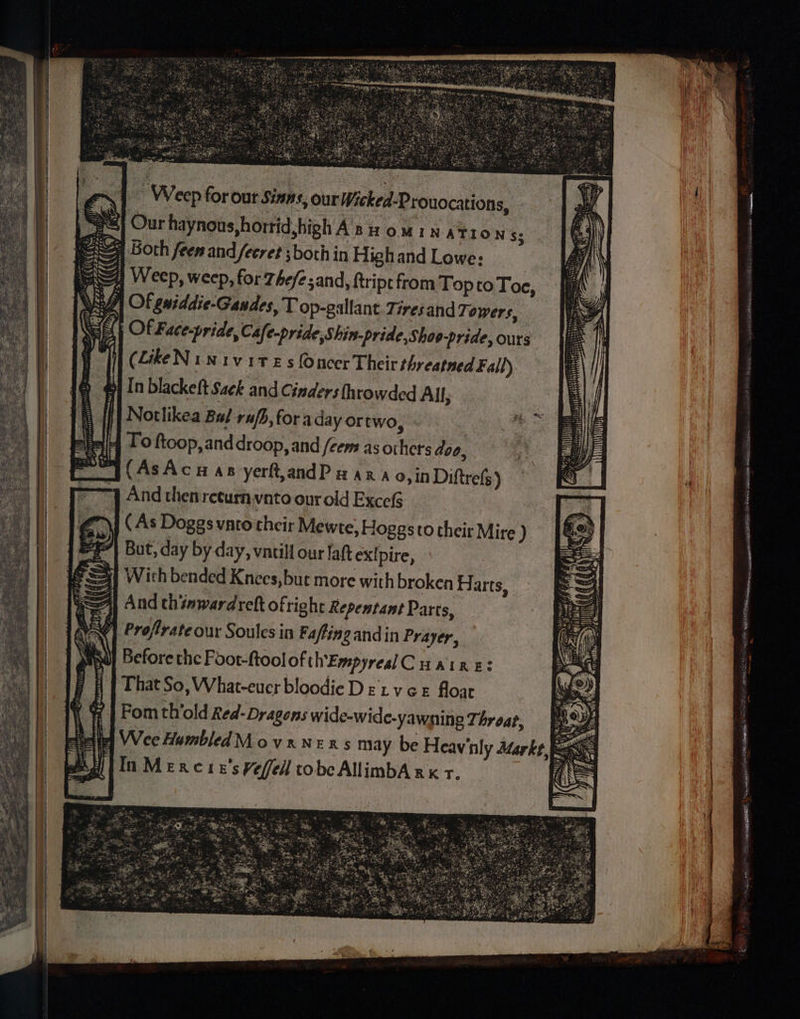 Weep for our Sinns, our Wicked-Prouocations,
Our haynous,horrid,high ABHOMINATIONS;
Both ſeen and ſecret ; both in High and Lowe:
Weep, weep, for Theſe ; and, ſtript from Top to Toe,
Of guiddie-Gaudes, Top-gallant Tires and Towers,
Of Face-pride, Caſe-pride, Shin-pride, Shoo-pride, ours
(Like NINIVITES ſoncer Their threatned Fall)
In blackeſt Sack and Cinders ſhrowded All,
Not like a Bul ruſh, for a day or two,
To ſtoop, and droop, and ſeem as others doo,
(As ACHAB yerſt, and PHARAO, in Diſtreſs)
And then return vnto our old Exceſs
(As Doggs vnto their Mewte, Hoggs to their Mire)
But, day by day, vntill our laſt exſpire,
With bended Knees, but more with broken Harts,
And th'inward reſt of right Repentant Parts,
Proſtrate our Soules in Faſting and in Prayer,
Before the Foot-ſtool of th'Empyreal CHAIRE:
That So, What-euer bloodie DELVGE float
Fom th'old Red-Dragons wide-wide-yawning Throat,
Wee Humbled MOVRNERS may be Heav'nly Markt,
In MERCIE's Veſſell to be All imbARKT.